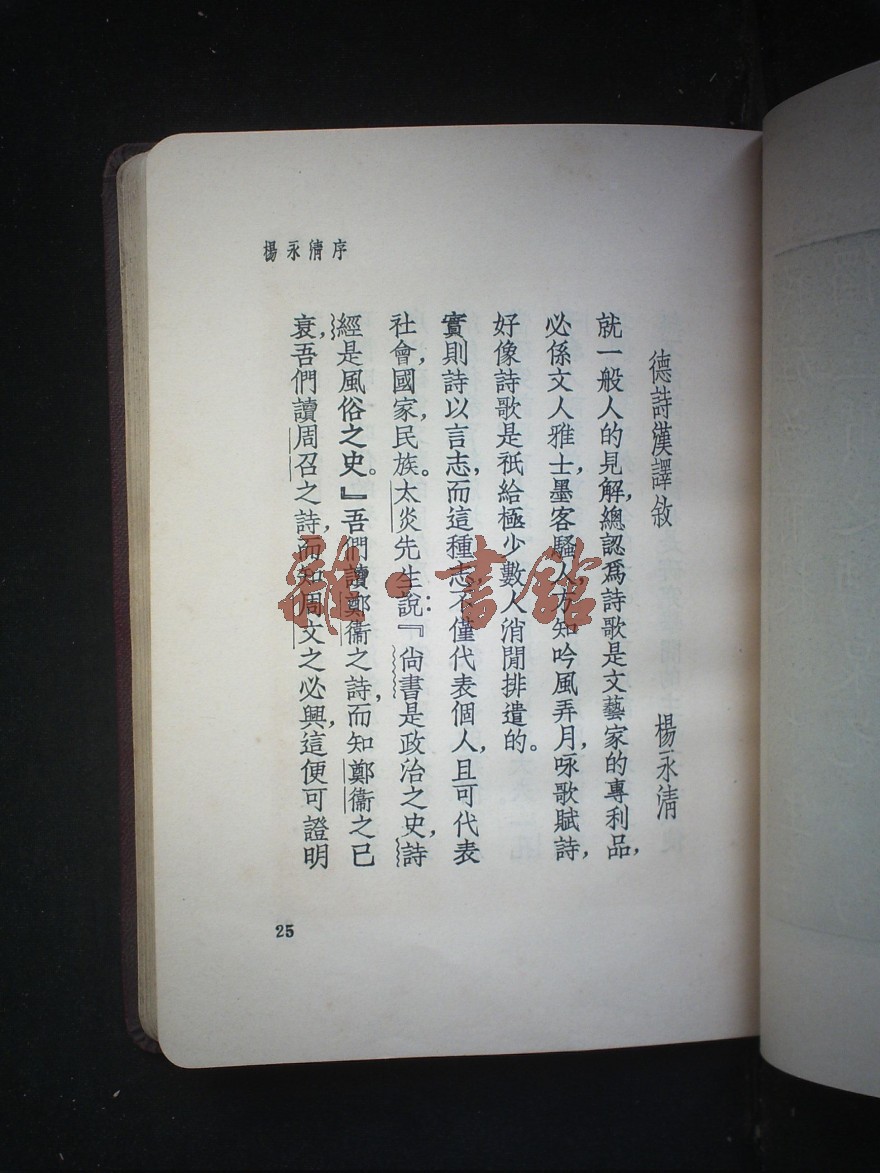 楊永清序
德詩漢譯敘 楊永清
就一般人的見解,總認爲詩歌是文藝家的專利品,
必係文人雅士,墨客騷人,方知吟風弄月,咏歌賦詩,
好像詩歌是祇給極少數人消閒排遣的。
實則詩以言志,而這種志,不僅代表個人,且可代表
社會,國家,民族。太炎先生說:『尙書是政治之史,詩
經是風俗之史。』吾們讀鄭衞之詩,而知鄭衞之已
衰,吾們讀周召之詩,而知周文之必興,這便可證明
25
雜·書館